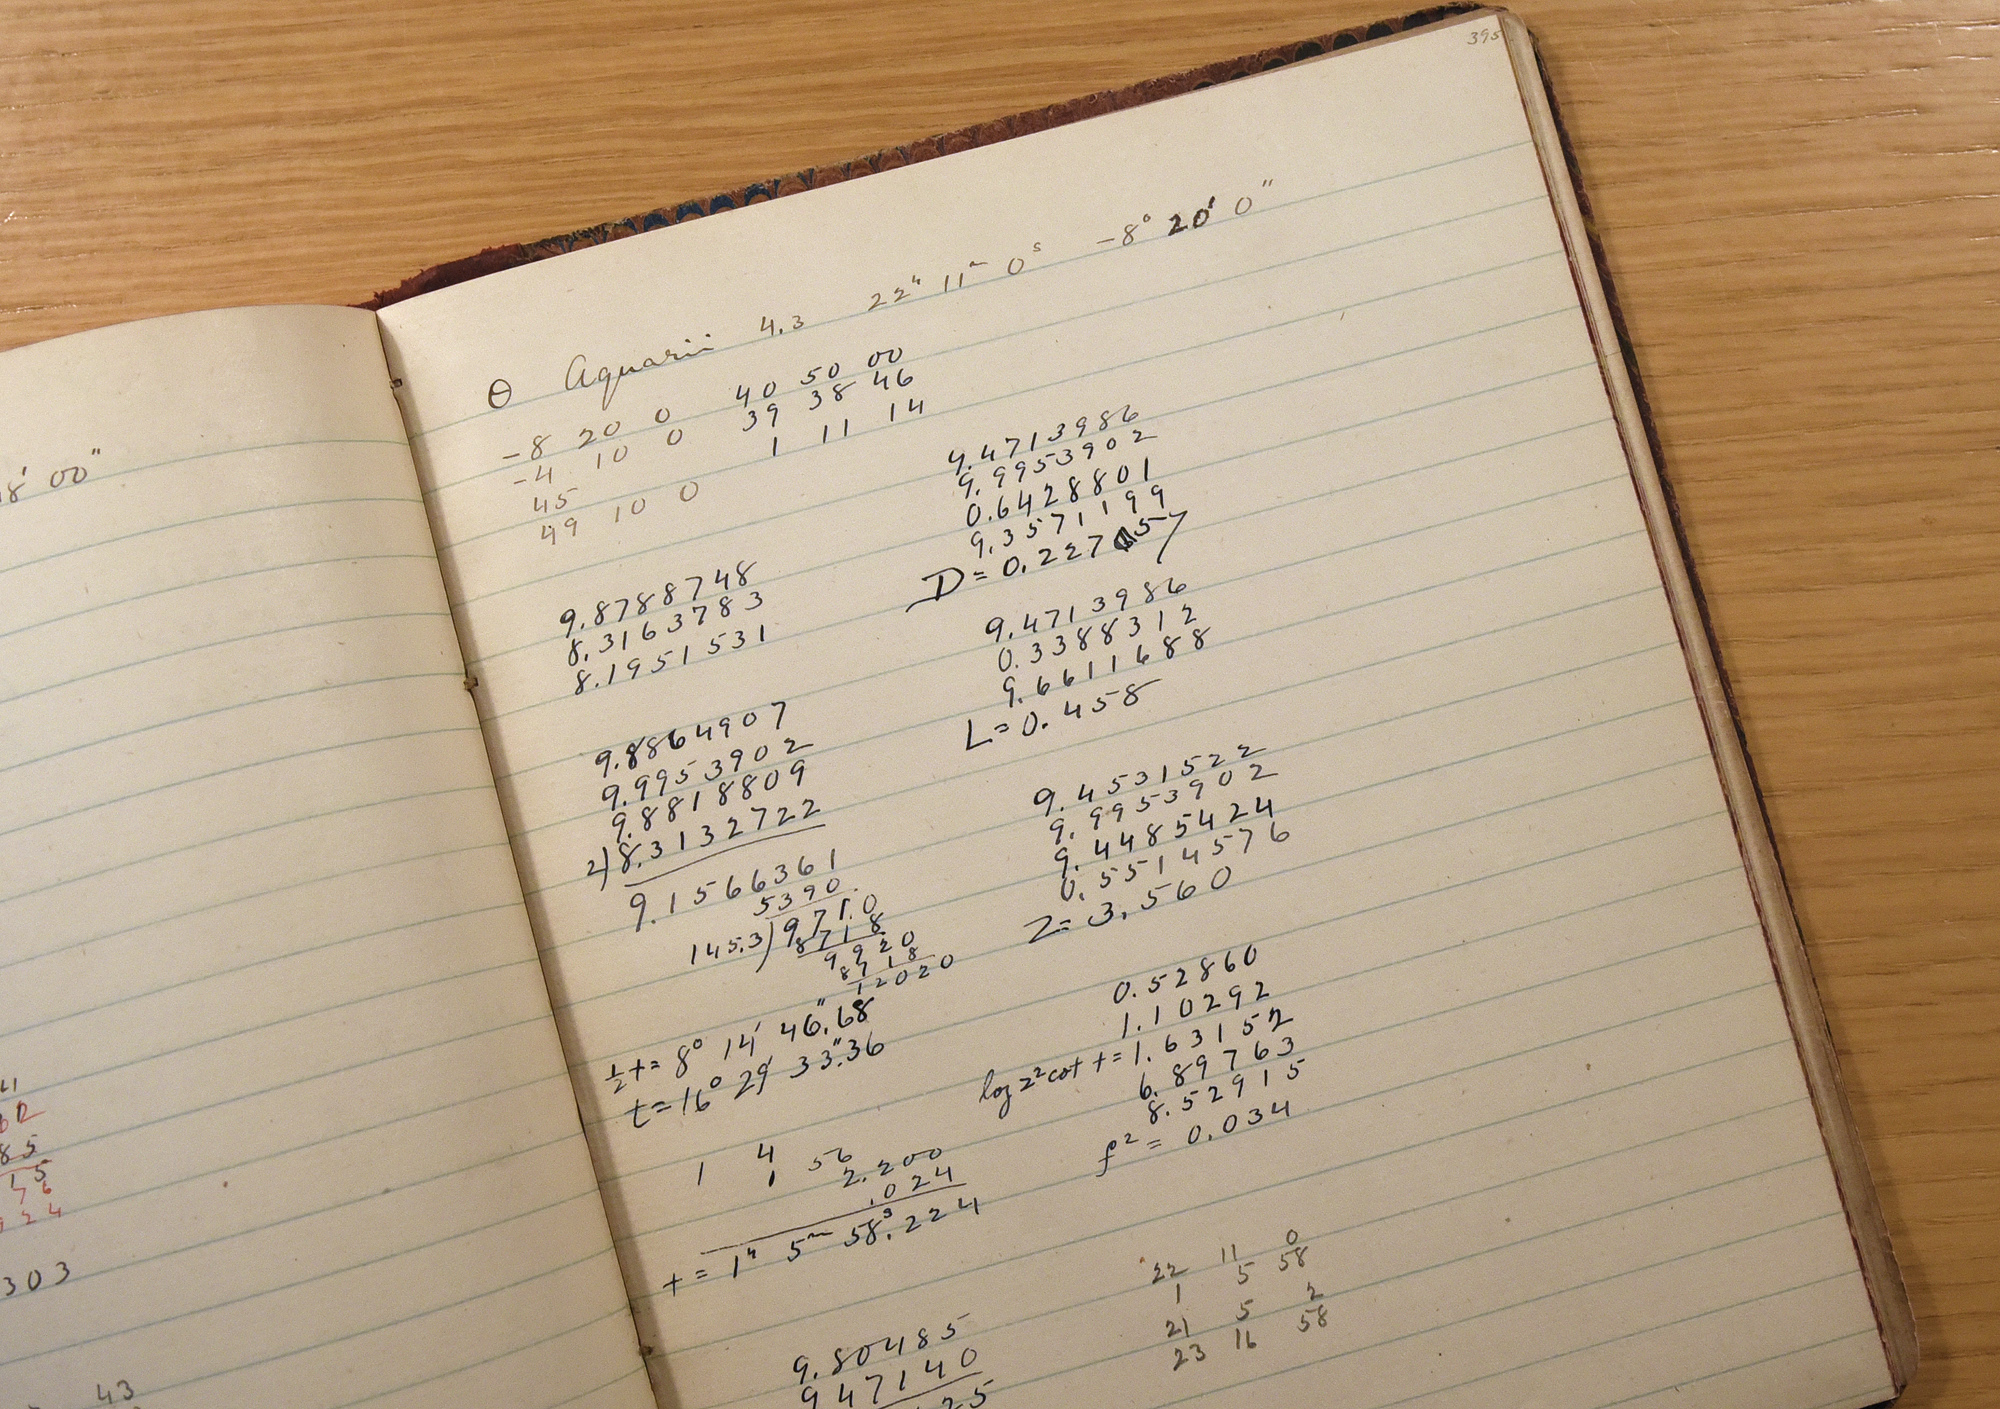 395
θ Aquarii 4.3 22ʰ 11ᵐ 0ˢ -8° 20' 0"
-8 20 0 40 50 00
-4 10 0 39 38 46
45 1 11 14
49 10 0
9.8788748
8.3163783
8.1951531
9.8864907
9.9953902
9.8818809
2)8.3132722
9.1566361
5390.
145.3)971.0
8718
9920
8718
12020
½t= 8° 14' 46".68
t=16° 29' 33".36
1 4 56
1 2.200
.024
t = 1ʰ 5ᵐ 58ˢ.224
9.80485
947140
25
9.4713986
9.9953902
0.6428801
9.3571199
D=0.22757
9.4713986
0.3388312
9.6611688
L=0.458
9.4531522
9.9953902
9.4485424
0.5514576
Z=3.560
0.52860
1.10292
log z² cot t=1.63152
6.89763
8.52915
f² = 0.034
22 11 0
1 5 58
21 5 2
23 16 58
18' 00"
85
15
76
924
303
43